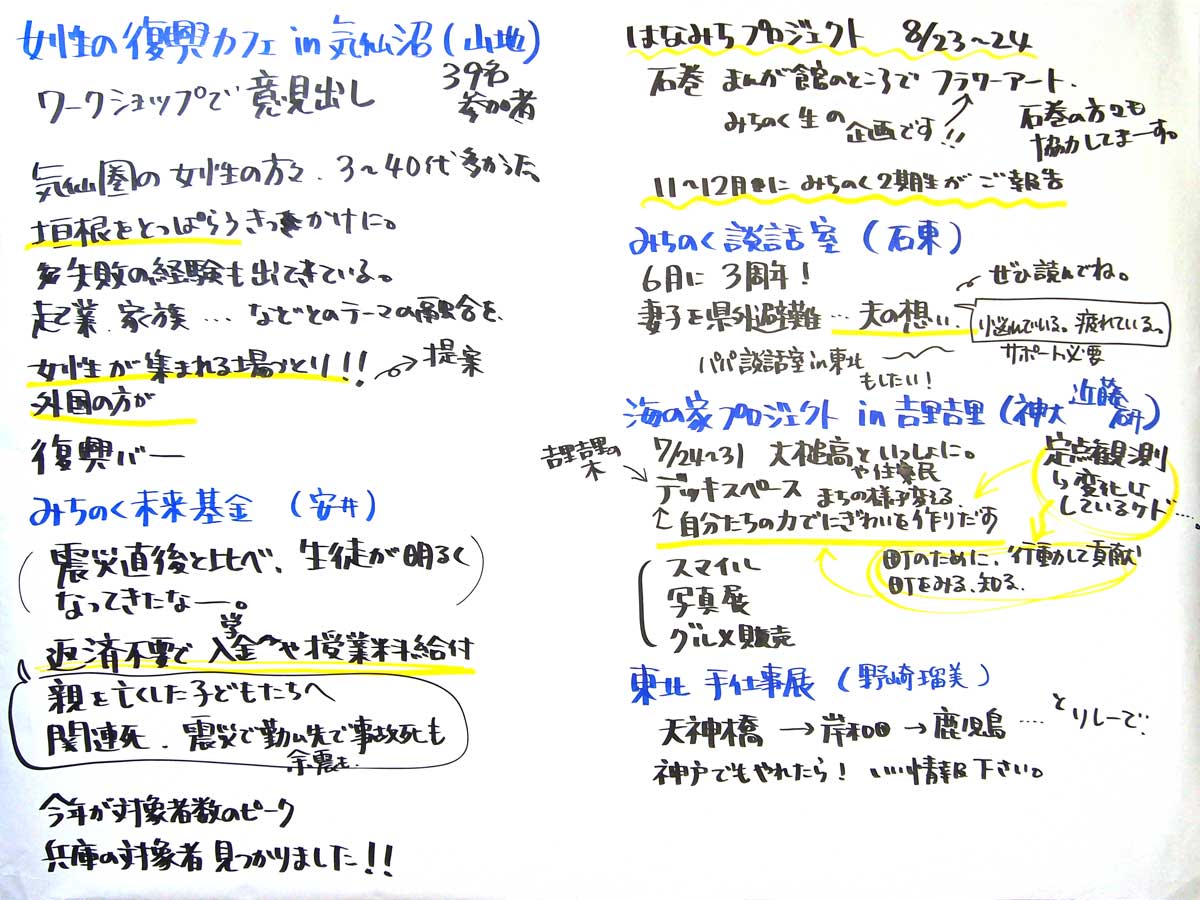 女性の復興カフェ in 気仙沼 (山地)
ワークショップで 意見出し
39名
参加者
気仙圏の女性の方々、3〜40代多かった
垣根をとっぱらうきっかけに。
失敗の経験も出てきている。
起業、家族 … などとのテーマの融合を、
女性が集まれる場づくり!! → 提案
外国の方が
復興バー
みちのく未来基金 (安井)
(震災直後と比べ、生徒が明るく
なってきたなー。)
返済不要で 入学金や授業料給付
親を亡くした子どもたちへ
関連死、震災で勤ム先で事故死も
余震も
今年が対象者数のピーク
兵庫の対象者見つかりました!!
はなみちプロジェクト 8/23〜24
石巻 まんが館のところで フラワーアート.
みちのく生の企画です!!
石巻の方々も
協力してまーす。
11〜12月に みちのく2期生が ご報告
みちのく談話室 (石東)
6月に 3周年!
ぜひ読んでね。
妻子を県外避難 … 夫の想い
悩んでいる。疲れている。
サポート必要
パパ談話室in東北
もしたい!
海の家プロジェクト in 吉里吉里 (神大 近藤研)
7/24〜31 大槌高といっしょに。
や住民
吉里吉里の
木
デッキスペース まちの様子変える
↑自分たちの力でにぎわいを作りだす
定点観測
ら変化は
しているケド…。
町のために、行動して貢献
町をみる、知る
スマイル
写真展
グルメ販売
東北 手仕事展 (野崎瑠美)
天神橋 → 岸和田 → 鹿児島 …… とリレーで.
神戸でもやれたら! いい情報下さい。